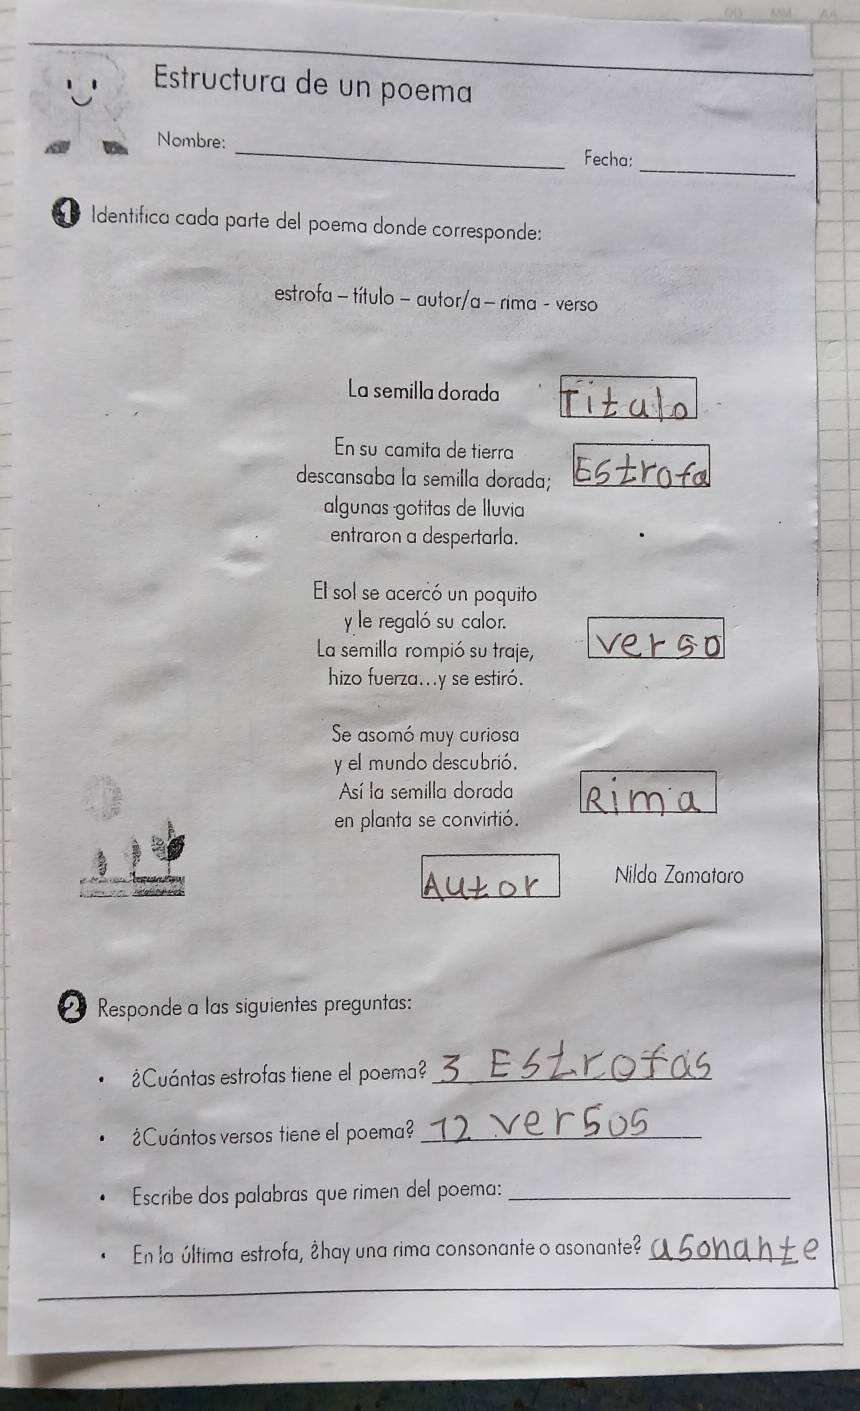 Estructura de un poema
Nombre:
Fecha:
1 Identifica cada parte del poema donde corresponde:
estrofa - título - autor/a - rima - verso
La semilla dorada
Titulo
En su camita de tierra
descansaba la semilla dorada;
Estrofa
algunas gotitas de lluvia
entraron a despertarla.
El sol se acercó un poquito
y le regaló su calor.
La semilla rompió su traje,
verso
hizo fuerza...y se estiró.
Se asomó muy curiosa
y el mundo descubrió.
Así la semilla dorada
Rima
en planta se convirtió.
Autor
Nilda Zamataro
2 Responde a las siguientes preguntas:
• ¿Cuántas estrofas tiene el poema? 3 Estrofas
• ¿Cuántos versos tiene el poema? 12 versos
• Escribe dos palabras que rimen del poema:
• En la última estrofa, ¿hay una rima consonante o asonante? asonante